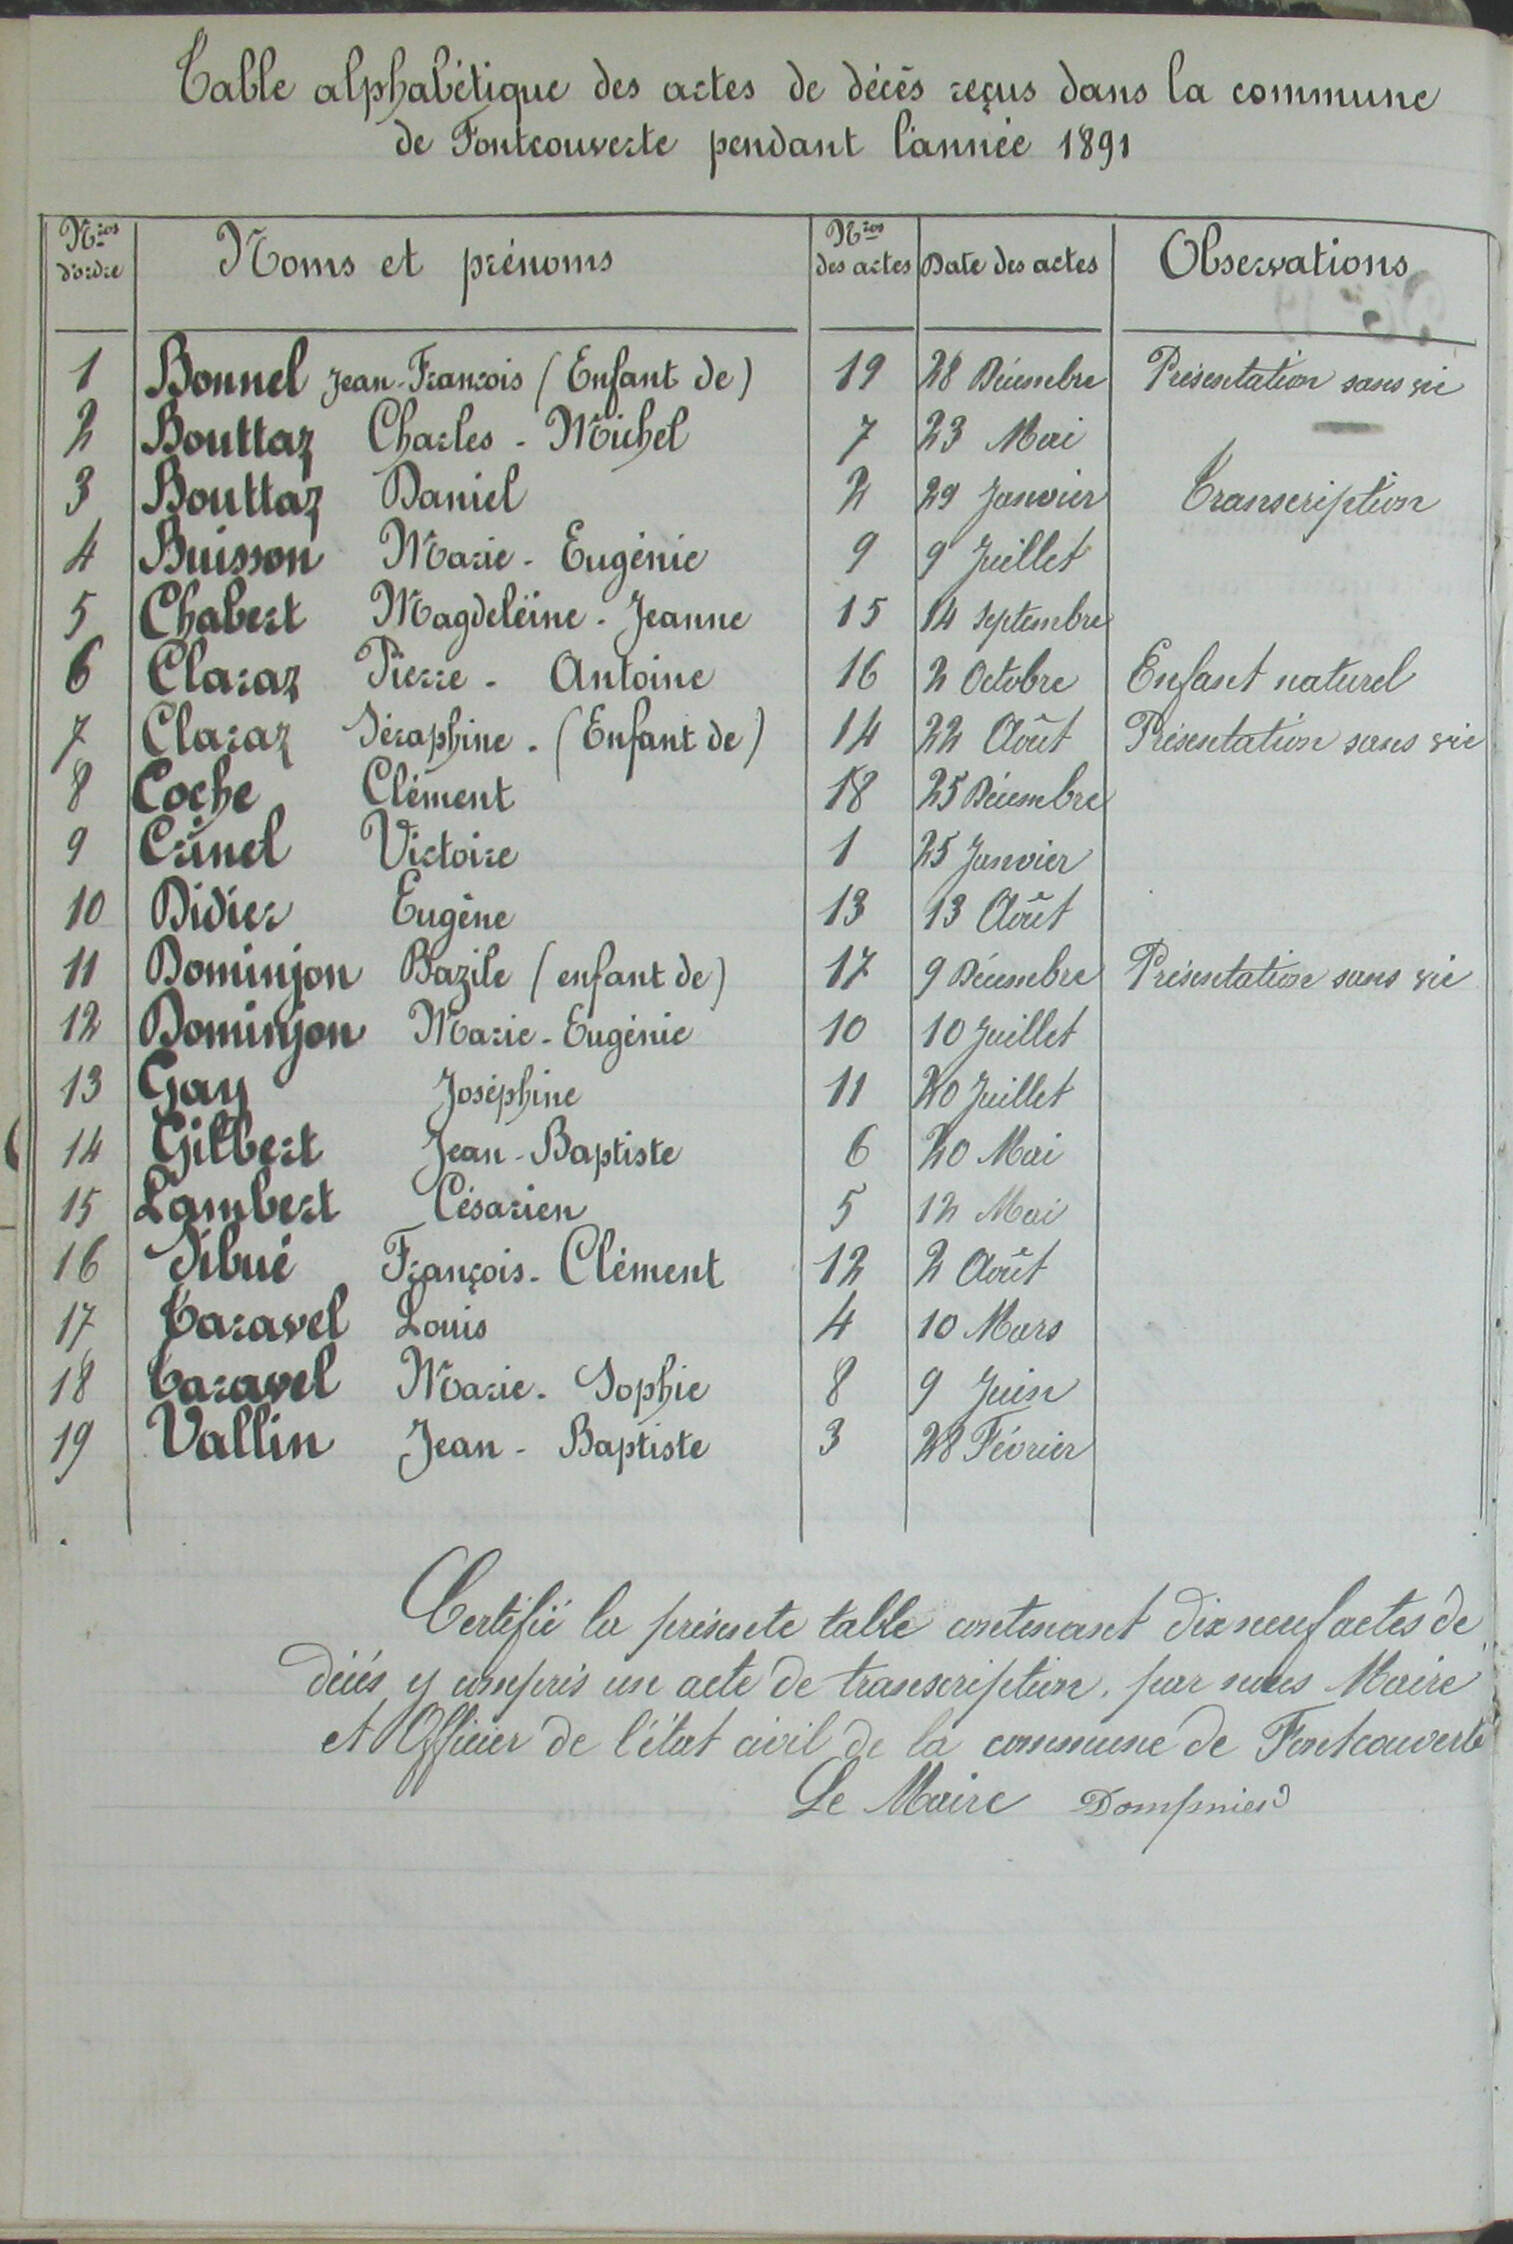 Table alphabétique des actes de décès reçus dans la commune
de Fontcouverte pendant l'année 1891
Nros d'ordre Noms et prénoms Nros des actes Date des actes Observations
1 Bonnel Jean-François (Enfant de) 19 28 Décembre Présentation sans vie
2 Bouttaz Charles - Michel 7 23 Mai
3 Bouttaz Daniel 2 29 Janvier Transcription
4 Buisson Marie - Eugénie 9 9 Juillet
5 Chabert Magdeleine - Jeanne 15 14 Septembre
6 Claraz Pierre - Antoine 16 2 Octobre Enfant naturel
7 Claraz Séraphine - (Enfant de) 14 22 Août Présentation sans vie
8 Coche Clément 18 25 Décembre
9 Crinel Victoire 1 25 Janvier
10 Didier Eugène 13 13 Août
11 Dominjon Bazile (enfant de) 17 9 Décembre Présentation sans vie
12 Dominjon Marie - Eugénie 10 10 Juillet
13 Gay Joséphine 11 20 Juillet
14 Gilbert Jean - Baptiste 6 20 Mai
15 Lambert Césarien 5 12 Mai
16 Sibué François - Clément 12 2 Août
17 Taravel Louis 4 10 Mars
18 Taravel Marie - Sophie 8 9 Juin
19 Vallin Jean - Baptiste 3 28 Février
Certifié la présente table contenant dix neuf actes de
décés y compris un acte de transcription, par nous Maire
et Officier de l'état civil de la commune de Fontcouverte
Le Maire Dompnier